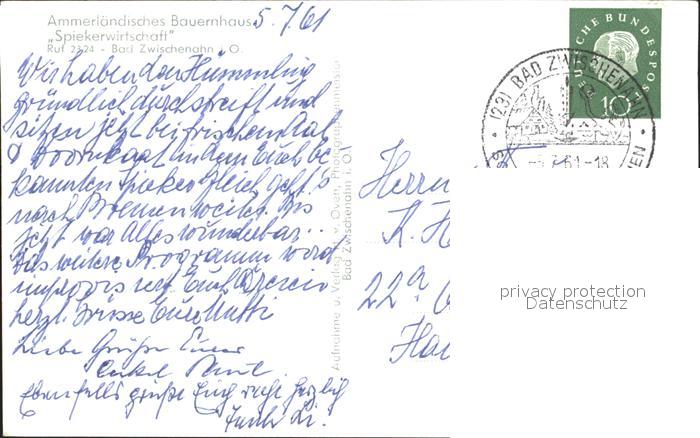 Ammerländisches Bauernhaus
5.7.61
„Spiekerwirtschaft"
Ruf 2324 - Bad Zwischenahn i. O.
Wir haben den Hümmling
gründlich durchstreift und
sitzen jetzt bei frischem Aal
& Doornkaat in dem Euch be
kannten Spieker. Gleich geht's
nach Bremen weiter. Bis
jetzt war Alles wunderbar..
Das weitere Programm wird
improvisiert. Euch
herzl. Grüsse Eure Mutti
Liebe Grüße Euer
Onkel
Ebenfalls grüße Euch recht herzlich
Aufnahme u. Verlag M. v. Oven, Photographenmeister
Bad Zwischenahn i. O.
DEUTSCHE BUNDESPOST
10
(23) BAD ZWISCHENAHN
-5.7.61-18
Herrn
K. H
22a
Han
privacy protection
Datenschutz